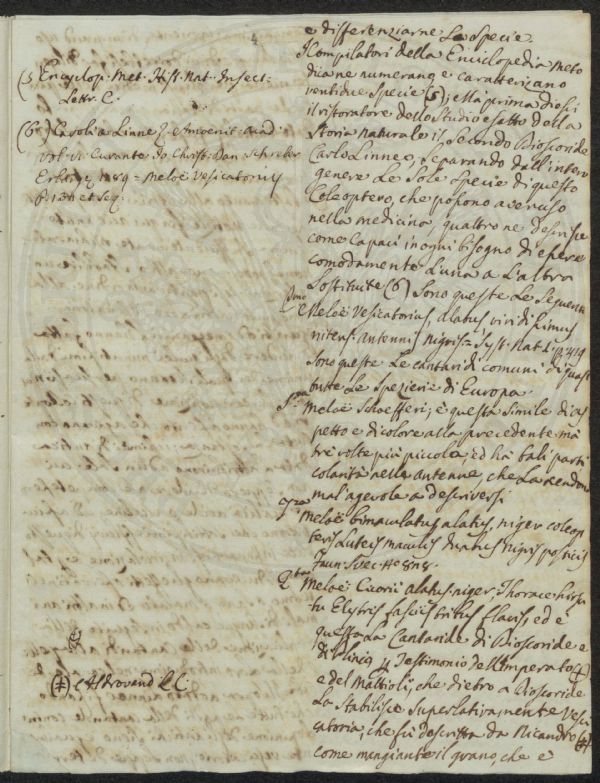 4
(5) Encyclop. Met. Hist. Nat. Insect.
Lettr. C.
(6) Caroli a Linnè Amoenit. Acad
vol. vi Curante Jo Christ. Dan Schreber
Erlangæ 1789 = Meloë Vesicatorius
et seq.
e differenziarne Le Specie.
I Compilatori della Enciclopedia Meto
dica ne numerano e caratterizano
ventidue Specie (5); ma prima di essi
il ristoratore dello Studio esatto della
Storia naturale il secondo Dioscoride
Carlo Linneo, separando dall'intero
genere Le Sole Specie di questo
Coleoptero, che possono aver uso
nella medicina, quattro ne descrisse
come Capaci in ogni bisogno di essere
comodamente L'una a L'altra
Sostituite (6) Sono queste Le Seguenti
Meloë Vesicatorius, alatus, viridissimus
nitens antennis nigris = Syst. Nat.
Sono queste Le cantaridi comuni di quasi
tutte Le Spezierie di Europa.
Meloë Schaefferi; è questa simile di as
petto e di colore alla precedente mà
tre volte più piccola, ed hà tali parti
colarità nelle antenne, che La rendono
mal'agevole a descriversi
Meloë bimaculatus alatus, niger coleop
teris Luteis maculis duabus nigris posticis
Faun. Svec.
Meloë Cicorii alatus niger, Thorace hirsu
tu Elytris fasciis tribus flavis, ed è
questa La Cantaride di Dioscoride e
di Plinio Testimonio dell'Imperato (‡)
e del Mattioli, che dietro a Dioscoride
La Stabilisce Superlativamente Vesi
catoria, che fù descritta da Nicandro (‡)
come mangiante il grano, che è
(‡) Aldrovand L.C.